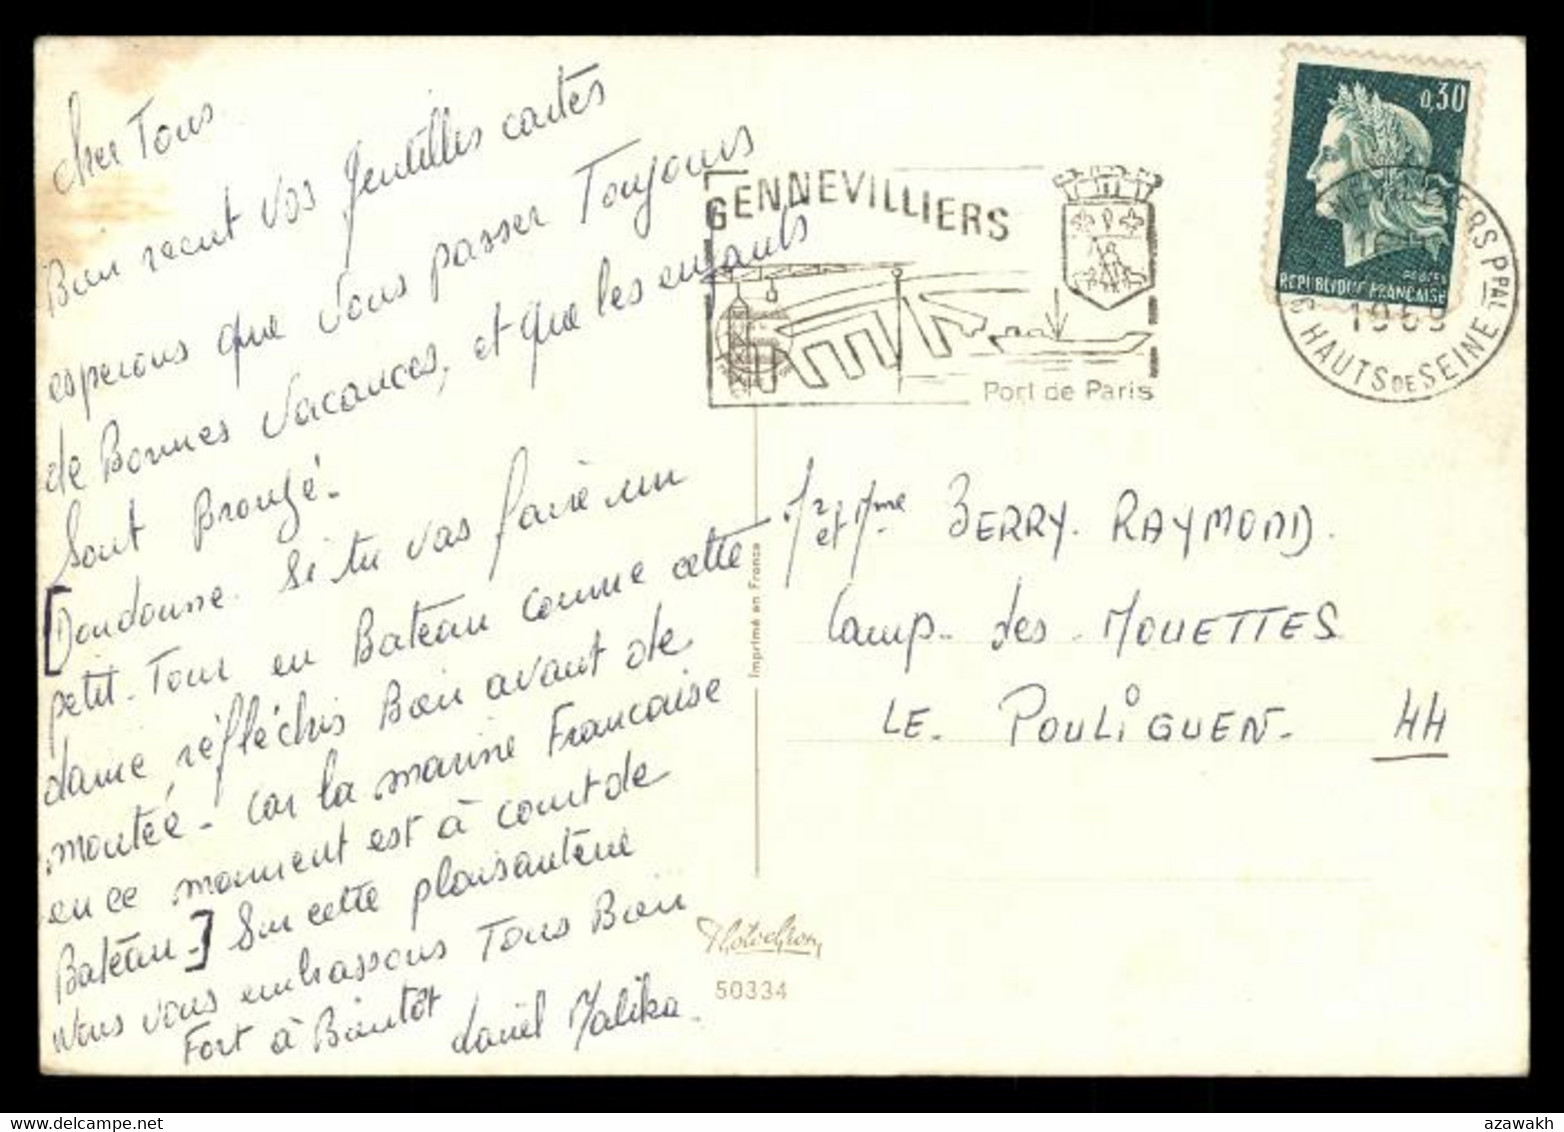 cher Tous
Bien recut vos gentilles cartes
esperons que vous passer Toujours
de Bonnes vacances, et que les enfants
sont Bronzé.
[Doudoune. Si tu vas faire un
petit. Tour en Bateau comme cette
dame réfléchis Bien avant de
montée. Car la marine Francaise
en ce moment est à court de
Bateau.] Sur cette plaisanterie
Nous vous embrassons Tous Bien
Fort à Bientôt
daniel Malika.
GENNEVILLIERS
Port de Paris
0,30
REPUBLIQUE FRANÇAISE
PPAL
1969
HAUTS DE SEINE
Mr et Mme BERRY. RAYMOND.
Camp. des. MOUETTES
LE. POULIGUEN. 44
Imprimé en France
Photochrom
50334
azawakh